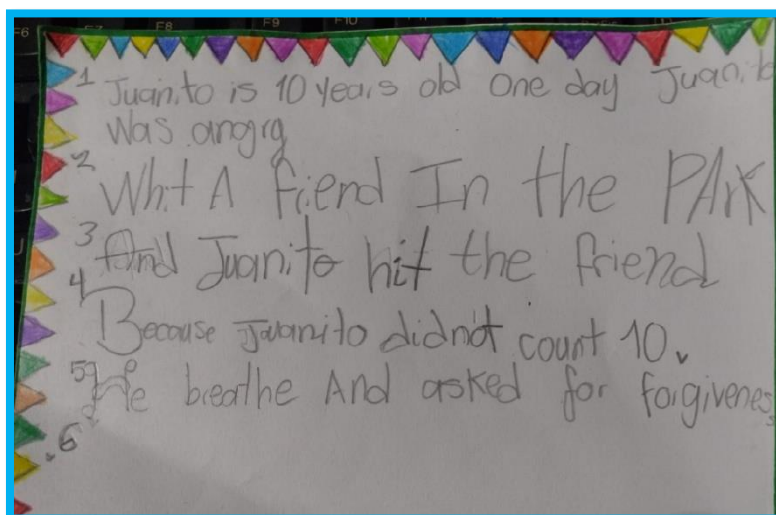 F6 F8 F9 F10
1 Juanito is 10 years old one day Juanito
was angrg
2 Whit A fiend In the PArk
3 And Juanito hit the friend
4 Because Juanito didn't count 10.
5 He breathe And asked for forgivenes
6